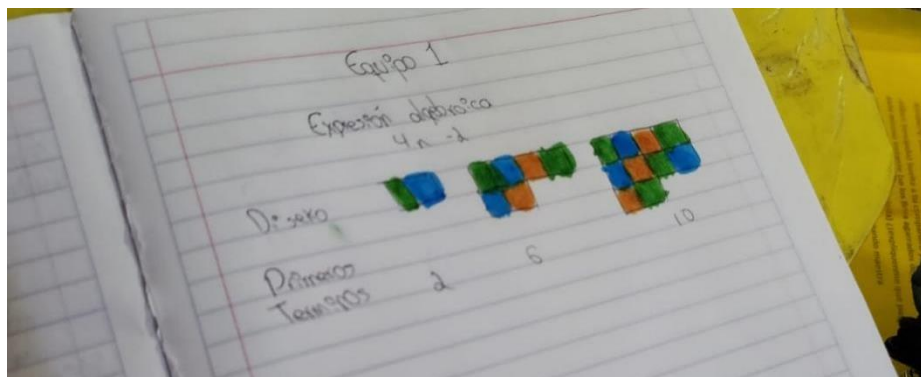 Equipo 1
Expresión algebraica
4n -2
Diseño
Primeros
Terminos 2 6 10